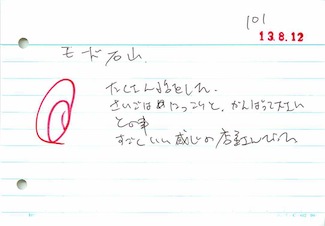 101
13.8.12
モード石山
たくさん話をした。
さいごはにっこりと、がんばって下さい
との事
すごくいい感じの店員さんだった